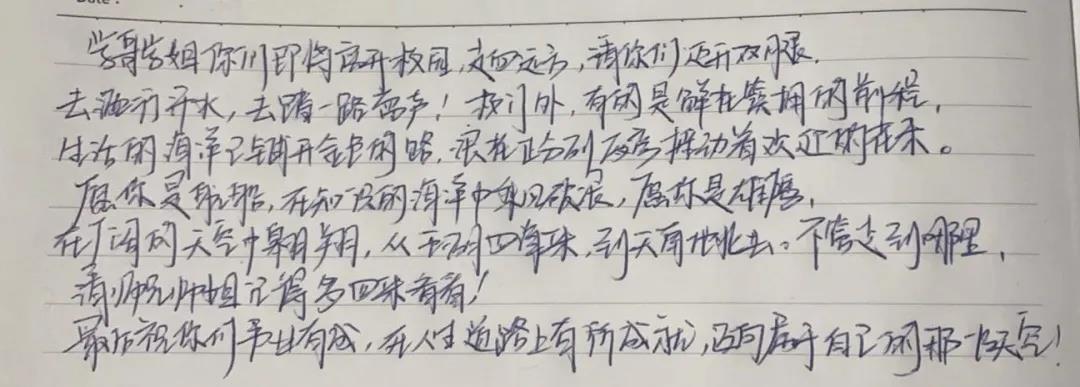 Date:
学哥学姐你们即将离开校园,走向远方,请你们迈开双腿,
去洒汗水,去踏一路 声!校门外,有的是鲜花簇拥的前程,
生活的海洋已铺开金色的路,浪花正分列两旁挥动着欢迎的花朵。
愿你是航船,在知识的海洋中乘风破浪,愿你是雄鹰,
在广阔的天空中翱翔,从五湖四海来,到天南地北去。不管走到哪里,
请师兄师姐记得多回来看看!
最后祝你们学业有成,在人生道路上有所成就,迈向属于自己的那一片天空!